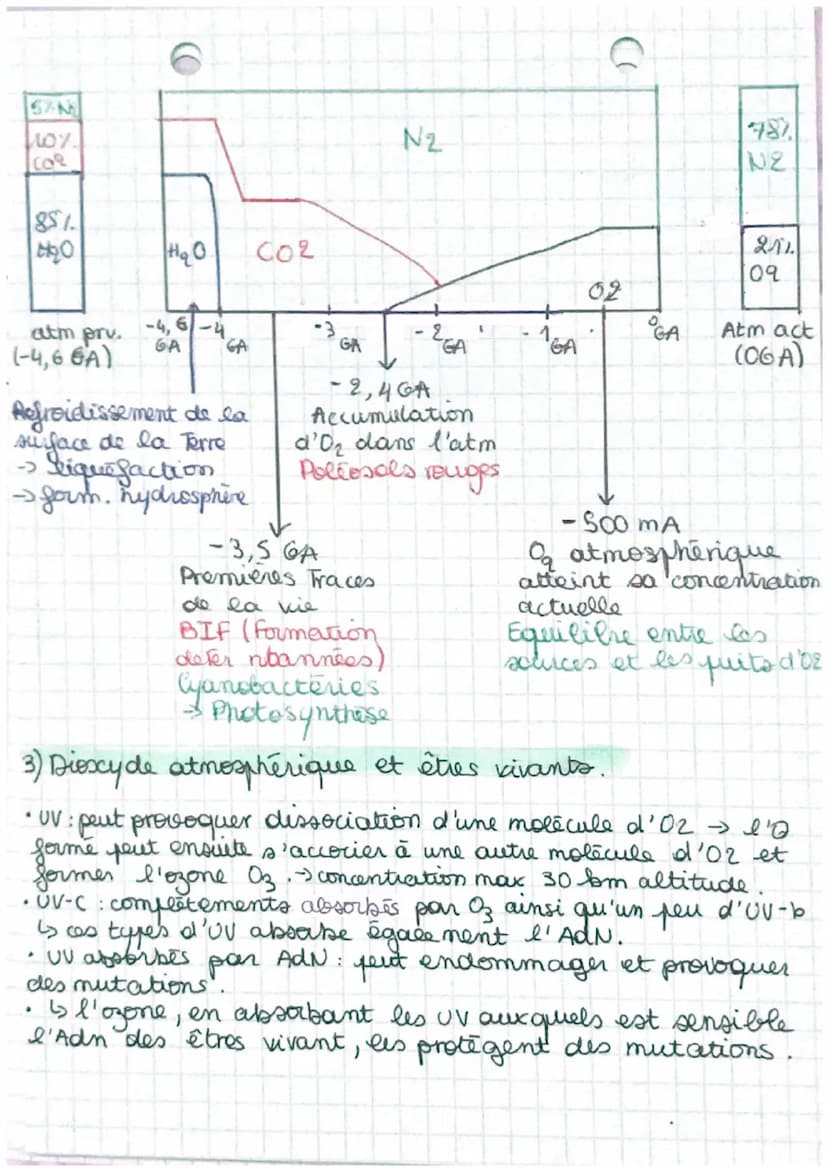 5% N2
10%
CO2
85%
H2O
atm prv.
(-4,6 GA)
N2
H2O
CO2
O2
78%
N2
21%
O2
Atm act
(0GA)
-4,6
GA
-4
GA
-3
GA
-2
GA
-1
GA
0
GA
Refroidissement de la
surface de la Terre
-> liquéfaction
-> form. hydrosphère
-2,4 GA
Accumulation
d'O2 dans l'atm
Paléosols rouges
-3,5 GA
Premières Traces
de la vie
BIF (Formation
de fer rubannées)
Cyanobactéries
-> Photosynthèse
-500 mA
O2 atmosphérique
atteint sa concentration
actuelle
Equilibre entre les
sources et les puits d'O2
3) Dioxyde atmosphérique et êtres vivants.
• UV : peut provoquer dissociation d'une molécule d'O2 -> l'O
formé peut ensuite s'accorier à une autre molécule d'O2 et
former l'ozone O3. -> concentration max 30 km altitude.
• UV-C : complètements absorbés par O3 ainsi qu'un peu d'UV-b
↳ ces types d'UV absorbe également l'AdN.
• UV absorbés par AdN : peut endommager et provoquer
des mutations.
• ↳ l'ozone, en absorbant les UV auxquels est sensible
l'Adn des êtres vivant, les protègent des mutations.